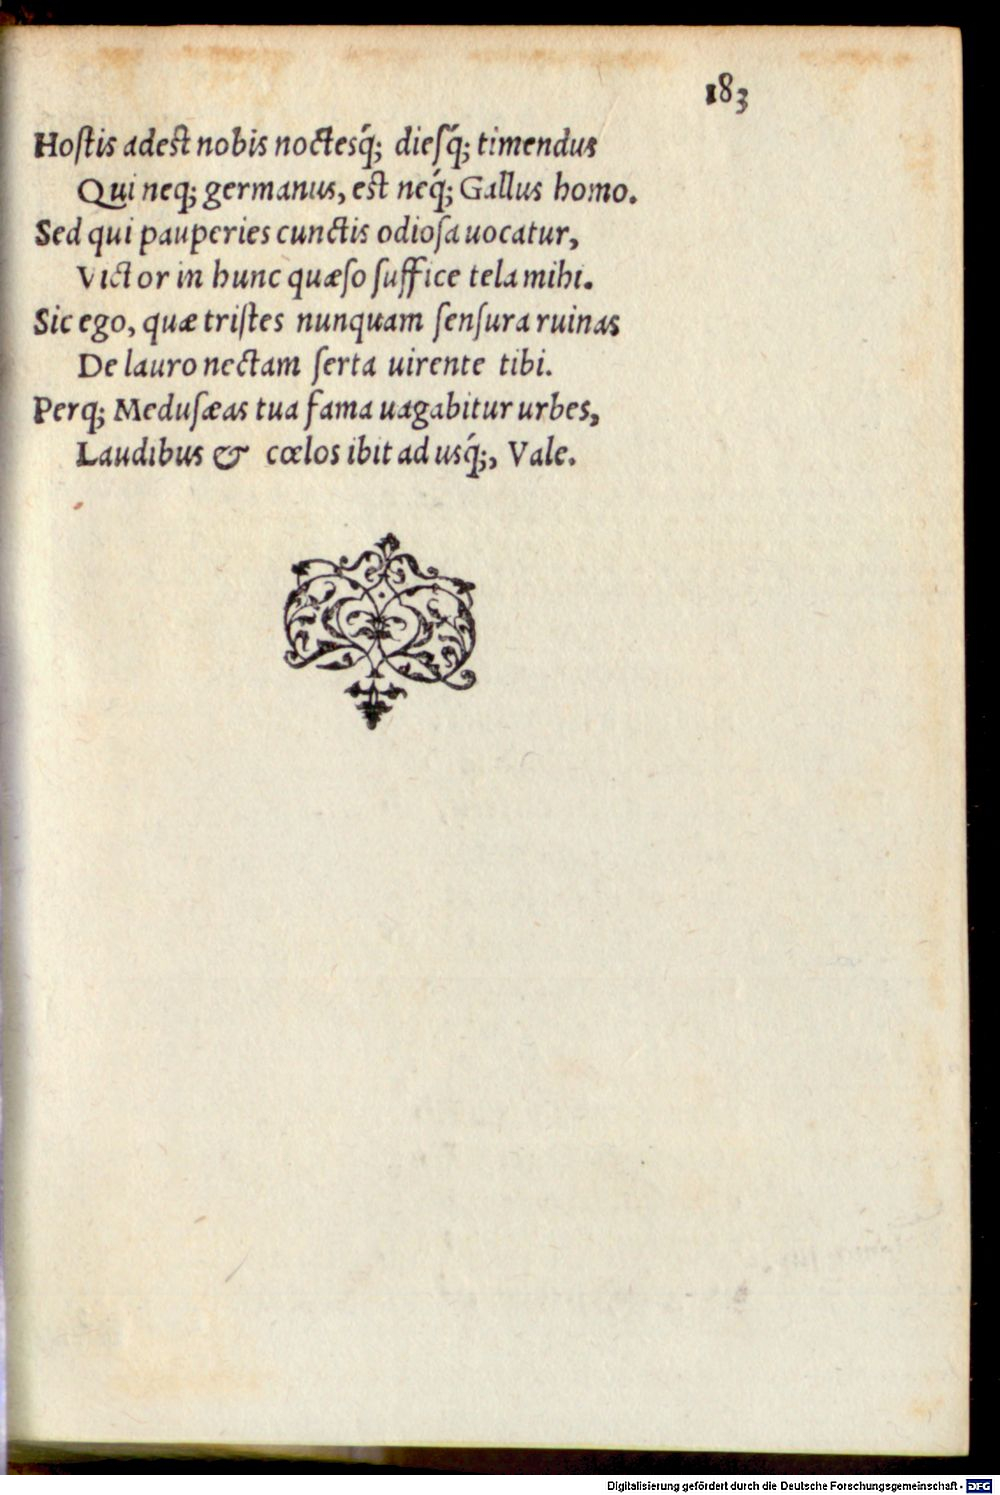 183
Hoſtis adeſt nobis noctesq́; dieſq́; timendus
Qui neq; germanus, eſt neq́; Gallus homo.
Sed qui pauperies cunctis odioſa uocatur,
Victor in hunc quæſo ſuffice tela mihi.
Sic ego, quæ triſtes nunquam ſenſura ruinas
De lauro nectam ſerta uirente tibi.
Perq; Meduſæas tua fama uagabitur urbes,
Laudibus & cœlos ibit ad usq́;, Vale.
Digitalisierung gefördert durch die Deutsche Forschungsgemeinschaft - DFG